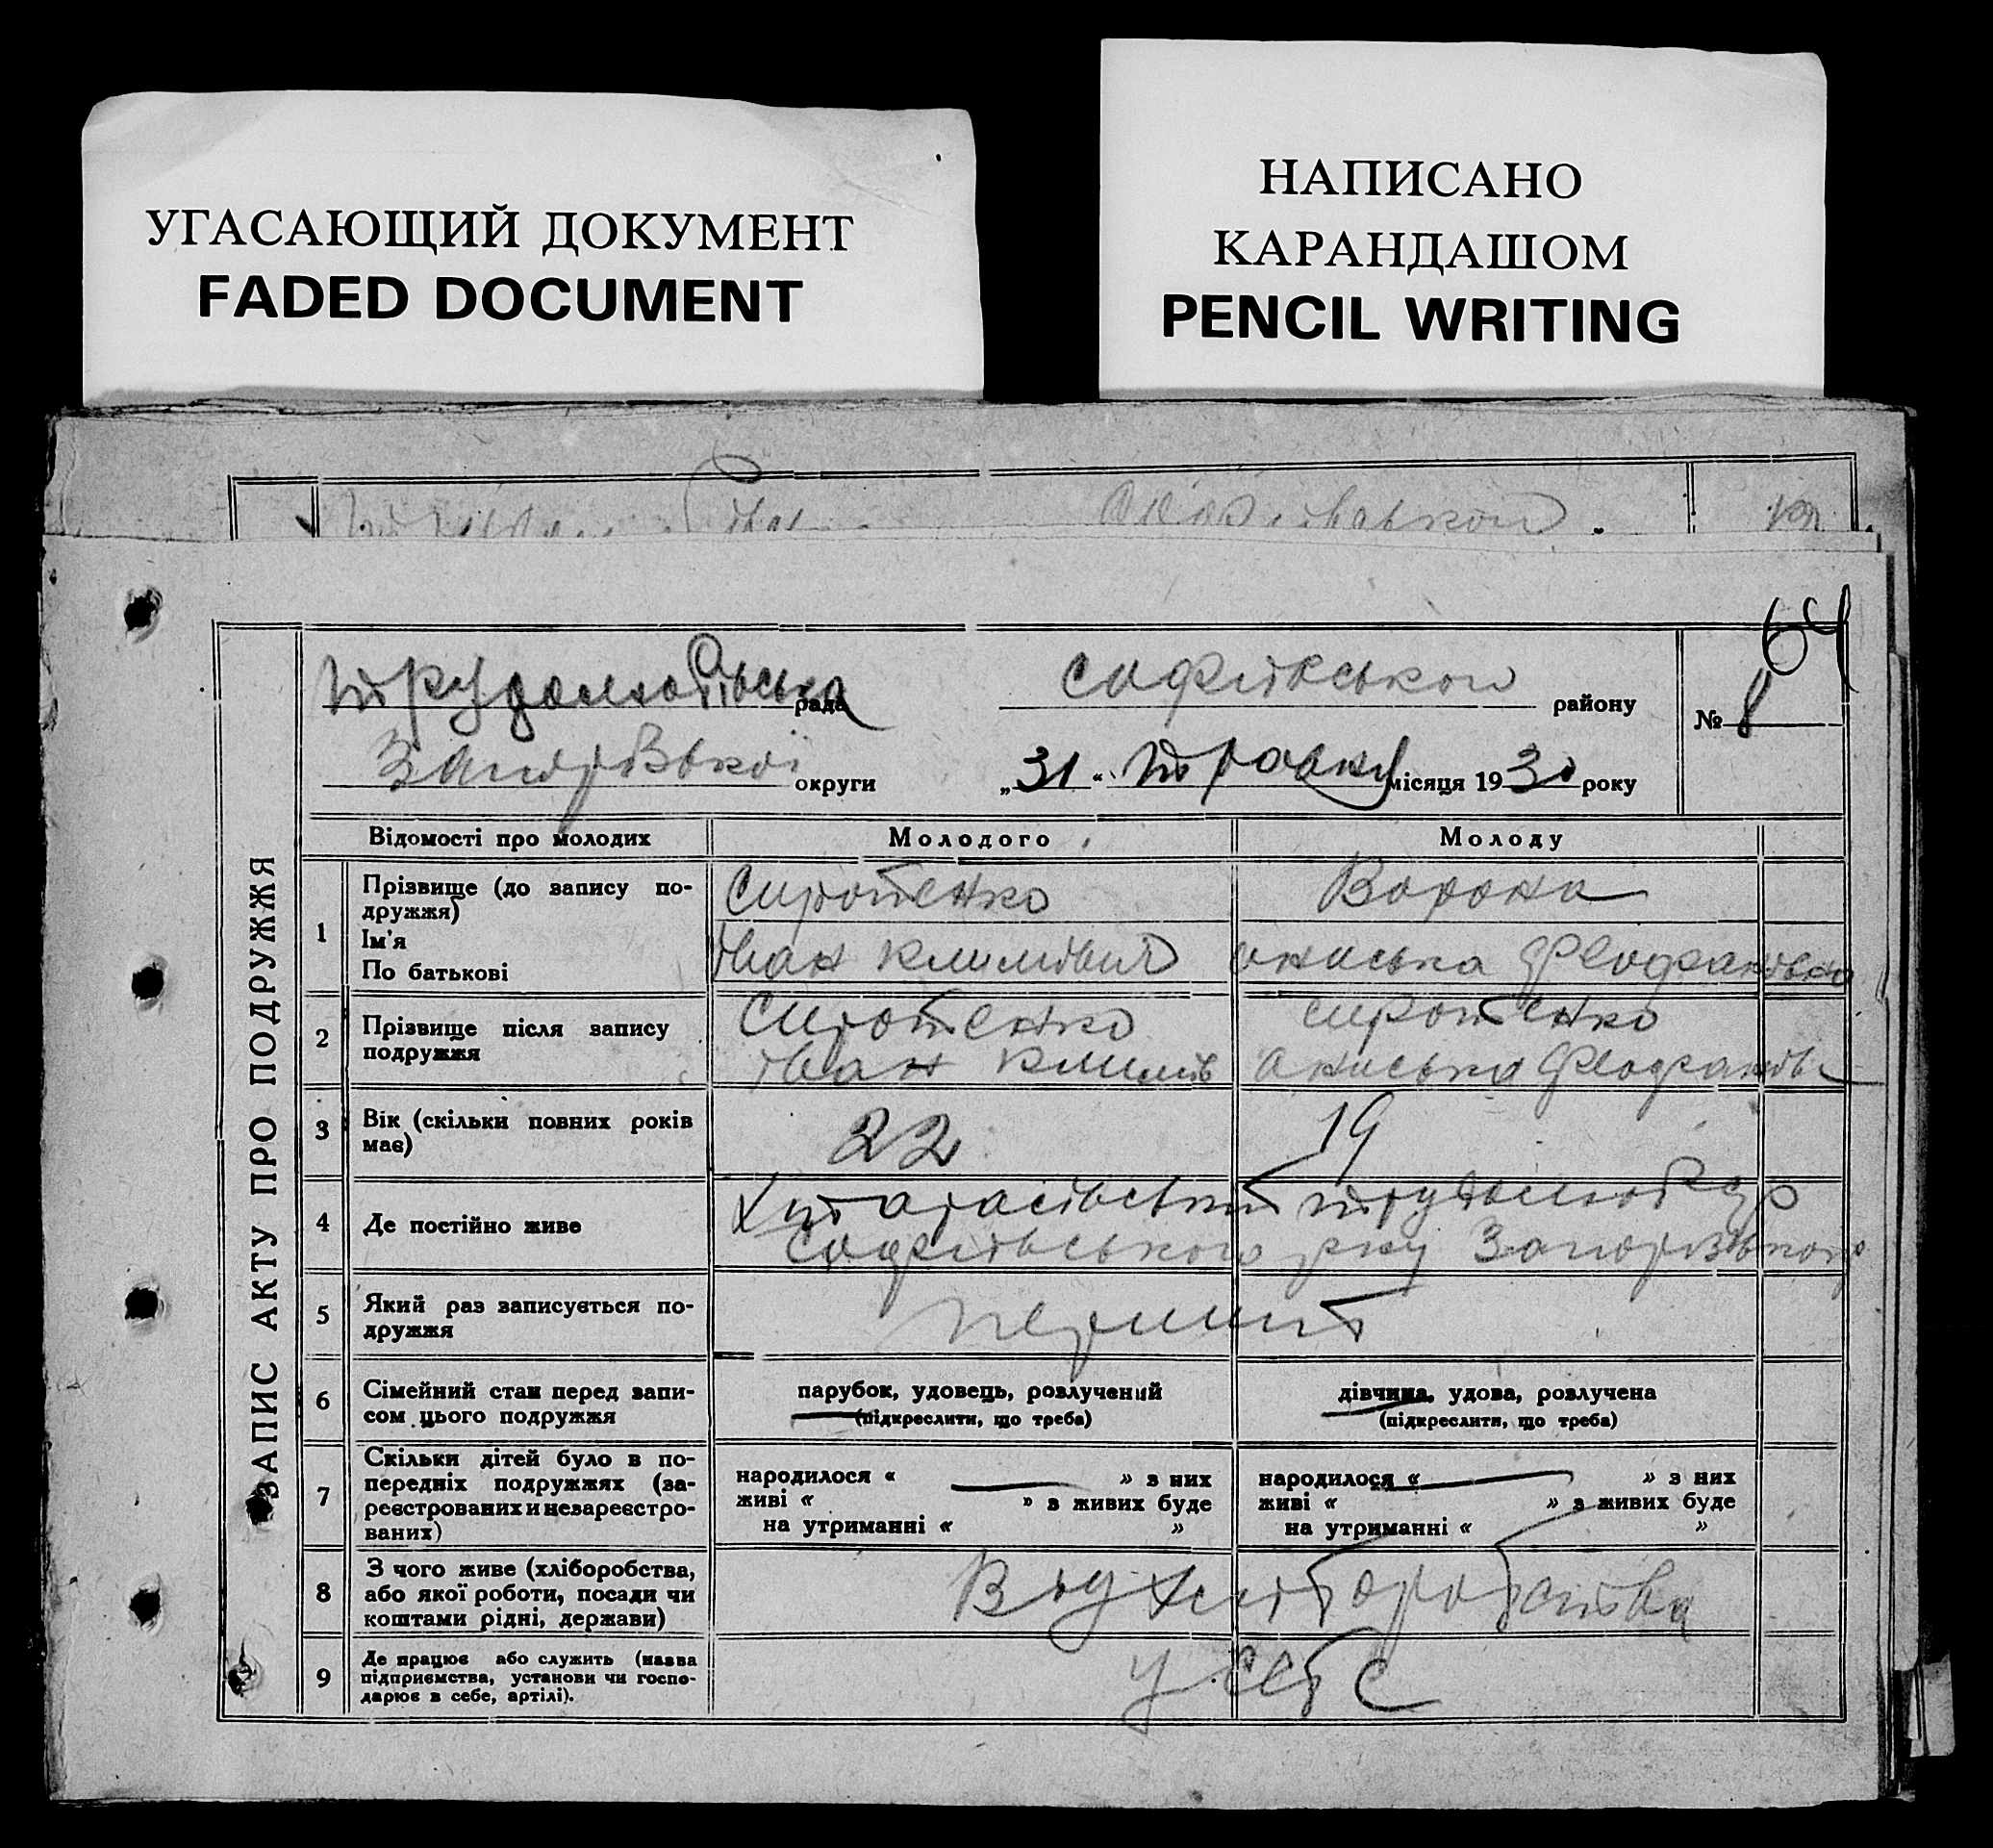 УГАСАЮЩИЙ ДОКУМЕНТ
FADED DOCUMENT
НАПИСАНО
КАРАНДАШОМ
PENCIL WRITING
64
Трудолюбівська рада
Софіївської району
№ 8
Запорізької округи
„31“ травня місяця 1930 року
ЗАПИС АКТУ ПРО ПОДРУЖЖЯ
Відомості про молодих
Молодого
Молоду
1
Прізвище (до запису по-
дружжя)
Ім'я
По батькові
Сиротенко
Ворона
Іван Климович
Ониська Феофанівна
2
Прізвище після запису
подружжя
Сиротенко
Сиротенко
Іван Климов
Ониська Феофанів
3
Вік (скільки повних років
має)
22
19
4
Де постійно живе
Трудолюб
Софіївського р-ну Запорізької
5
Який раз записується по-
дружжя
перший
6
Сімейний стан перед запи-
сом цього подружжя
парубок, удовець, розлучений
(підкреслити, що треба)
дівчина, удова, розлучена
(підкреслити, що треба)
7
Скільки дітей було в по-
передніх подружжях (за-
реєстрованих и незареєстро-
ваних)
народилося « » з них
живі « » з живих буде
на утриманні « »
народилося « » з них
живі « » з живих буде
на утриманні « »
8
З чого живе (хліборобства,
або якої роботи, посади чи
коштами рідні, держави)
Від хліборобства
9
Де працює або служить (назва
підприємства, установи чи госпо-
дарює в себе, артілі).
у себе